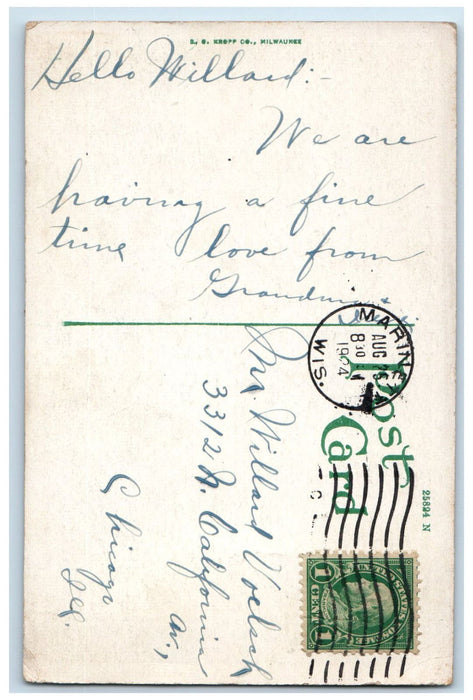 E. C. KROPP CO., MILWAUKEE
Hello Willard:-
We are
having a fine
time love from
Grandma &
MARINETTE
AUG
8 30
1924
WIS.
Post
Card
25894 N
Mr. Willard Voelsck
3312 N. California
av,
Chicago
Ill.
UNITED STATES POSTAGE
1 CENT 1